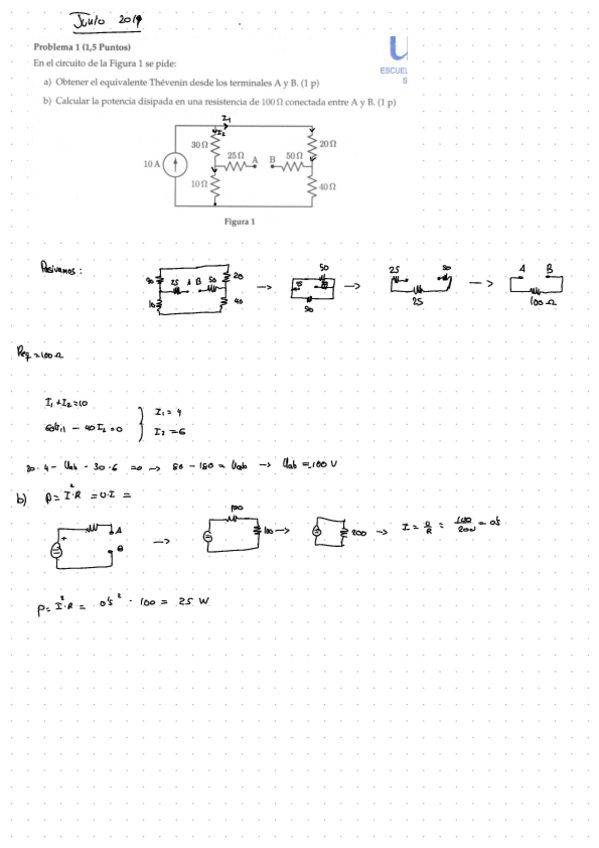 Junio 2019
Problema 1 (1,5 Puntos)
En el circuito de la Figura 1 se pide:
a) Obtener el equivalente Thévenin desde los terminales A y B. (1 p)
b) Calcular la potencia disipada en una resistencia de 100 Ω conectada entre A y B. (1 p)
U
ESCUEL
S
I1
I2
30 Ω 20 Ω
25 Ω A B 50 Ω
10 A
10 Ω 40 Ω
Figura 1
Pasivamos:
30 25 A B 50 20
10 40
50
90
25 50
25
A B
100 Ω
Req = 100 Ω
I1 + I2 = 10
60I1 - 40I2 = 0
I1 = 4
I2 = 6
20·4 - Uab - 30·6 = 0 → 80 - 180 = Uab → Uab = 100 V
b) P = I²·R = U·I =
+ A
B
100
100
200 → I = U/R = 100/200 = 0'5
P = I²·R = 0'5² · 100 = 25 W